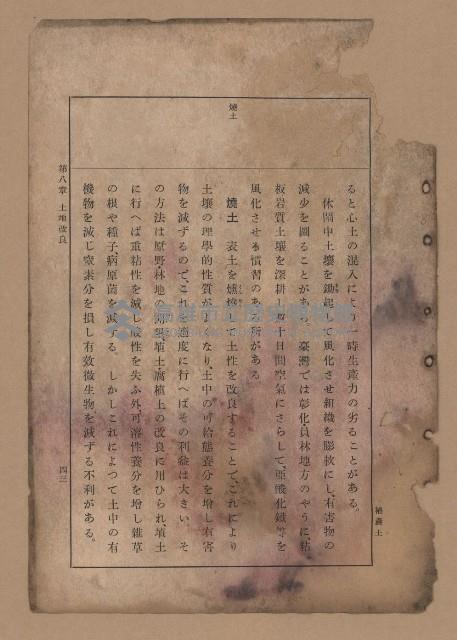 燒土
ると心土の混入により一時生產力の劣ることがある。
休閑中土壤を鋤起して風化させ組織を膨軟にし、有害物の
減少を圖ることがある。臺灣では彰化員林地方のやうに、粘
板岩質土壤を深耕し 日間空氣にさらして、亞酸化鐵等を
風化させる慣習のある所がある
燒土 表土を燻燒して土性を改良することで、これにより
土壤の理學的性質が良くなり、土中の可給態養分を增し有害
物を減ずるので、これを適度に行へばその利益は大きい。そ
の方法は原野林地の開墾、埴土、腐植土の改良に用ひられ埴土
に行へば重粘性を減じ酸性を失ふ外、可溶性養分を增し雜草
の根や種子、病原菌を減ずる。しかしこれによつて土中の有
機物を減じ窒素分を損し有效微生物を減ずる不利がある。
第八章 土地改良
四三